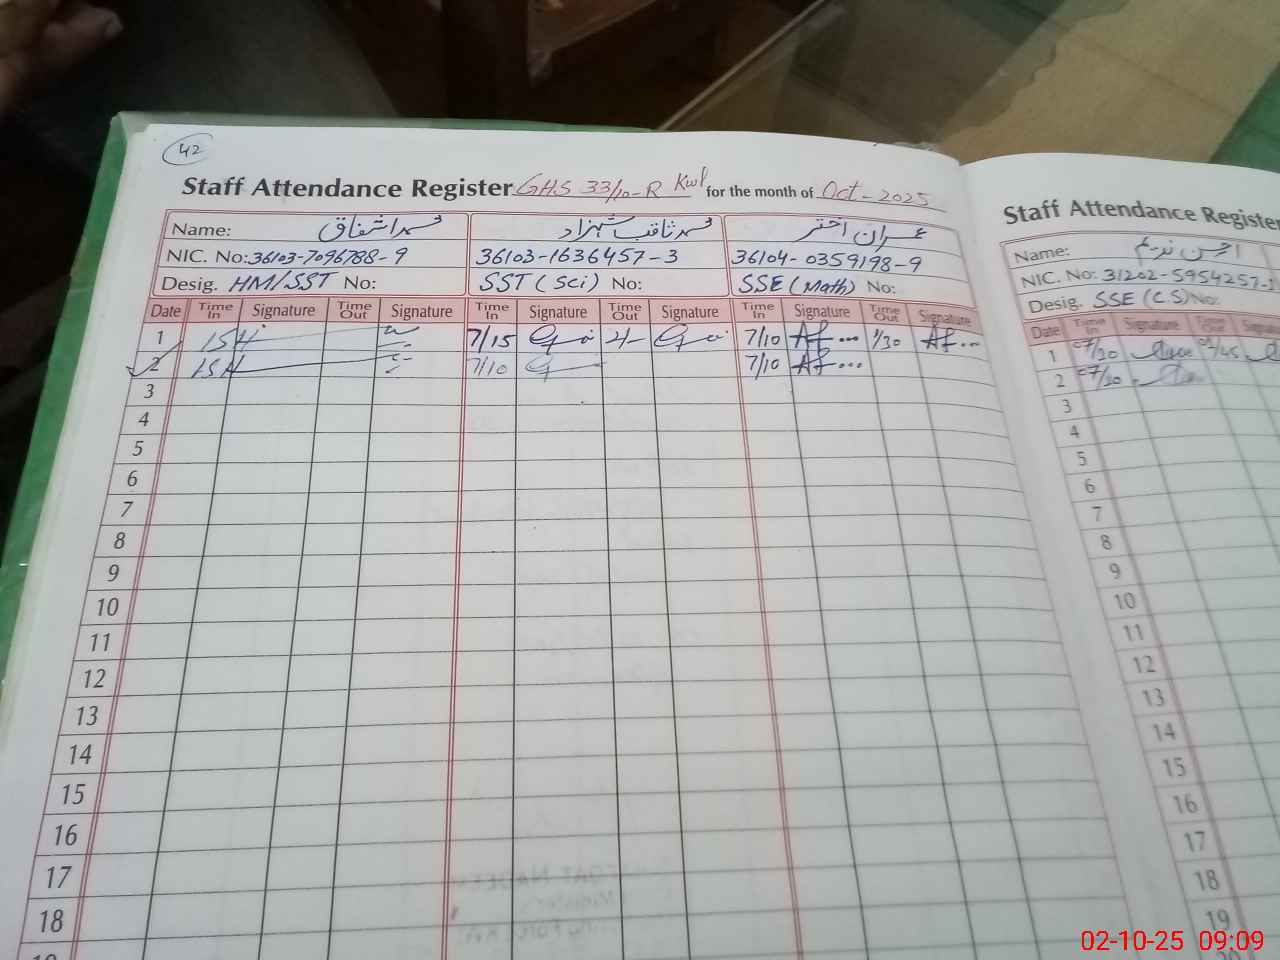 42
Staff Attendance Register GHS 33/10-R Kwl for the month of Oct-2025
Name: محمد اشفاق محمد ثاقب شہزاد عمران اختر
NIC. No: 36103-7096788-9 36103-1636457-3 36104-0359198-9
Desig. HM/SST No: SST (Sci) No: SSE (Math) No:
Date Time In Signature Time Out Signature Time In Signature Time Out Signature Time In Signature Time Out Signature
1 7/15 7/10 1/30
2 7/10 7/10
3
4
5
6
7
8
9
10
11
12
13
14
15
16
17
18
Staff Attendance Register
Name:
NIC. No: 31202-5954257-1
Desig. SSE (CS) No:
Date Time In Signature Time Out
1 07/20 01/45
2 07/20
3
4
5
6
7
8
9
10
11
12
13
14
15
16
17
18
19
02-10-25 09:09